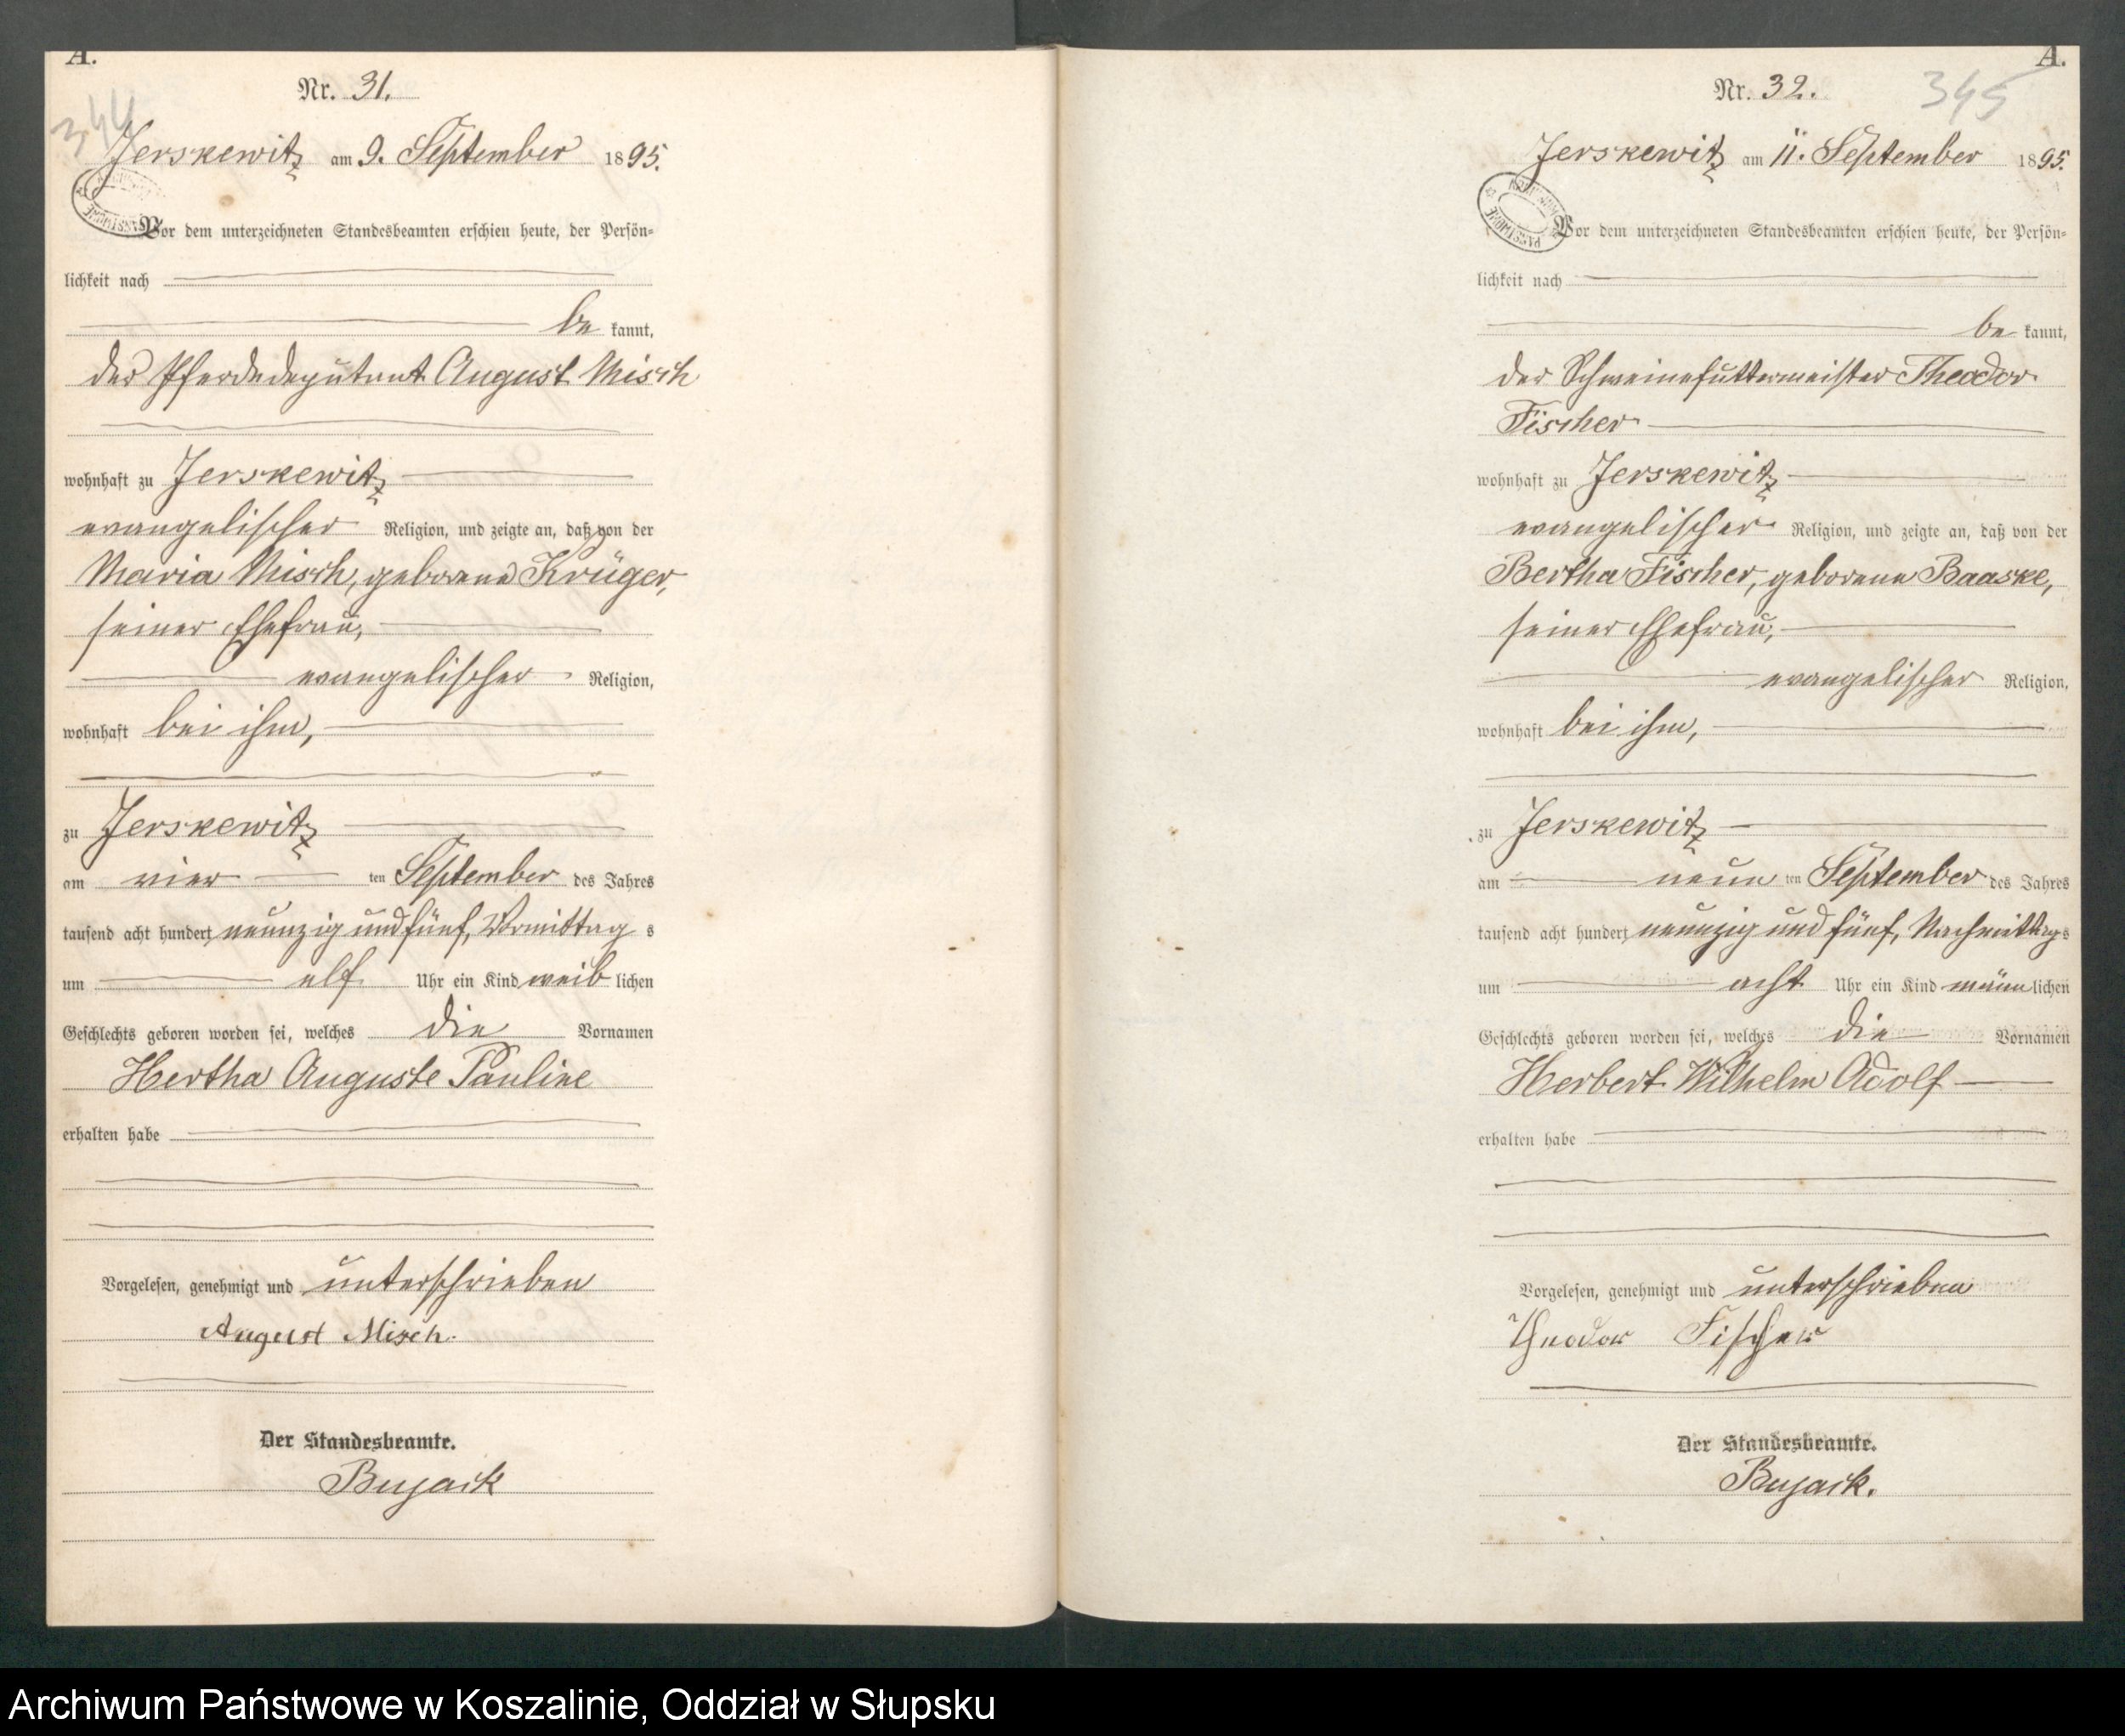 A.
Nr. 31.
344
Jerskewitz am 9. September 1895.
Vor dem unterzeichneten Standesbeamten erschien heute, der Persön-
lichkeit nach
be kannt,
der Pferdedeputant August Misch
wohnhaft zu Jerskewitz
evangelischer Religion, und zeigte an, daß von der
Maria Misch, geborene Krüger,
seiner Ehefrau,
evangelischer Religion,
wohnhaft bei ihm,
zu Jerskewitz
am vier ten September des Jahres
tausend acht hundert neunzig und fünf, Vormittag s
um elf Uhr ein Kind weib lichen
Geschlechts geboren worden sei, welches die Vornamen
Hertha Auguste Pauline
erhalten habe
Vorgelesen, genehmigt und unterschrieben
August Misch.
Der Standesbeamte.
Bujack
A.
Nr. 32.
345
Jerskewitz am 11. September 1895.
Vor dem unterzeichneten Standesbeamten erschien heute, der Persön-
lichkeit nach
be kannt,
der Schweinefuttermeister Theodor
Fischer
wohnhaft zu Jerskewitz
evangelischer Religion, und zeigte an, daß von der
Bertha Fischer, geborene Baaske,
seiner Ehefrau,
evangelischer Religion,
wohnhaft bei ihm,
zu Jerskewitz
am neun ten September des Jahres
tausend acht hundert neunzig und fünf, Nachmittags
um acht Uhr ein Kind männ lichen
Geschlechts geboren worden sei, welches die Vornamen
Herbert Wilhelm Adolf
erhalten habe
Vorgelesen, genehmigt und unterschrieben
Theodor Fischer
Der Standesbeamte.
Bujack.
Archiwum Państwowe w Koszalinie, Oddział w Słupsku